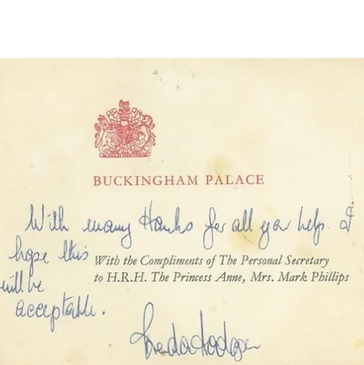 BUCKINGHAM PALACE
With many thanks for all your help. I
hope this
will be
acceptable.
With the Compliments of The Personal Secretary
to H.R.H. The Princess Anne, Mrs. Mark Phillips